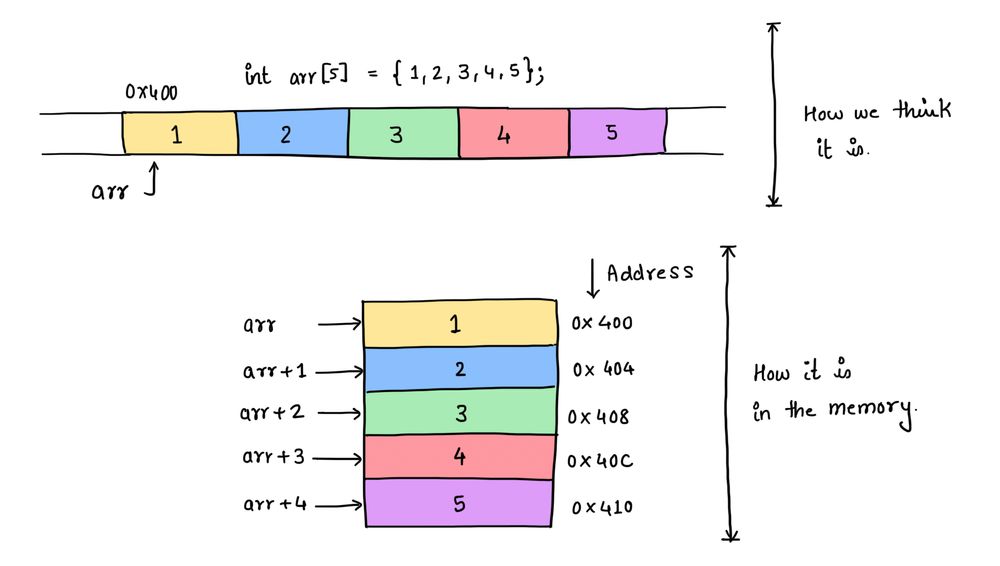 int arr[5] = { 1, 2, 3, 4, 5 };
0x400
1 2 3 4 5
arr
How we think
it is.
Address
arr 1 0x400
arr+1 2 0x 404
arr+2 3 0x408
arr+3 4 0x40C
arr+4 5 0x410
How it is
in the memory.